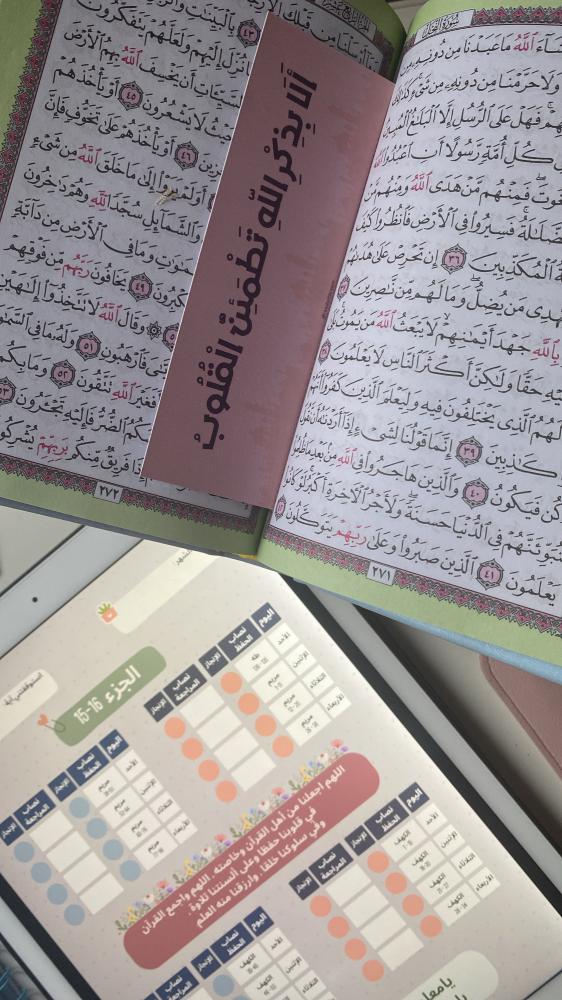 سورة النحل
شَاءَ ٱللَّهُ مَا عَبَدْنَا مِن دُونِهِۦ مِن
وَلَا حَرَّمْنَا مِن دُونِهِۦ مِن شَىْءٍ كَذَٰلِكَ
فَهَلْ عَلَى ٱلرُّسُلِ إِلَّا ٱلْبَلَٰغُ ٱلْمُبِينُ
كُلِّ أُمَّةٍ رَّسُولًا أَنِ ٱعْبُدُوا۟ ٱللَّهَ
فَمِنْهُم مَّنْ هَدَى ٱللَّهُ وَمِنْهُم مَّنْ
ٱلضَّلَٰلَةُ فَسِيرُوا۟ فِى ٱلْأَرْضِ فَٱنظُرُوا۟ كَيْفَ
ٱلْمُكَذِّبِينَ ٣٦ إِن تَحْرِصْ عَلَىٰ هُدَىٰهُمْ
يَهْدِى مَن يُضِلُّ وَمَا لَهُم مِّن نَّٰصِرِينَ ٣٧
بِٱللَّهِ جَهْدَ أَيْمَٰنِهِمْ لَا يَبْعَثُ ٱللَّهُ مَن يَمُوتُ بَلَىٰ
حَقًّا وَلَٰكِنَّ أَكْثَرَ ٱلنَّاسِ لَا يَعْلَمُونَ ٣٨
لَهُمُ ٱلَّذِى يَخْتَلِفُونَ فِيهِ وَلِيَعْلَمَ ٱلَّذِينَ كَفَرُوٓا۟ أَنَّهُمْ
كَٰذِبِينَ ٣٩ إِنَّمَا قَوْلُنَا لِشَىْءٍ إِذَآ أَرَدْنَٰهُ أَن نَّقُولَ
كُن فَيَكُونُ ٤٠ وَٱلَّذِينَ هَاجَرُوا۟ فِى ٱللَّهِ مِنۢ بَعْدِ مَا ظُلِمُوا۟
لَنُبَوِّئَنَّهُمْ فِى ٱلدُّنْيَا حَسَنَةً وَلَأَجْرُ ٱلْءَاخِرَةِ أَكْبَرُ لَوْ كَانُوا۟
يَعْلَمُونَ ٤١ ٱلَّذِينَ صَبَرُوا۟ وَعَلَىٰ رَبِّهِمْ يَتَوَكَّلُونَ
٢٧١
وَمَآ أَرْسَلْنَا مِن قَبْلِكَ إِلَّا
٤٣ بِٱلْبَيِّنَٰتِ وَٱلزُّبُرِ
مَا نُزِّلَ إِلَيْهِمْ وَلَعَلَّهُمْ يَتَفَكَّرُونَ
ٱلسَّيِّـَٔاتِ أَن يَخْسِفَ ٱللَّهُ بِهِمُ ٱلْأَرْضَ
حَيْثُ لَا يَشْعُرُونَ ٤٥ أَوْ يَأْخُذَهُمْ
٤٦ أَوْ يَأْخُذَهُمْ عَلَىٰ تَخَوُّفٍ فَإِنَّ
أَوَلَمْ يَرَوْا۟ إِلَىٰ مَا خَلَقَ ٱللَّهُ مِن شَىْءٍ
وَٱلشَّمَآئِلِ سُجَّدًا لِّلَّهِ وَهُمْ دَٰخِرُونَ
ٱلسَّمَٰوَٰتِ وَمَا فِى ٱلْأَرْضِ مِن دَآبَّةٍ
٤٩ يَخَافُونَ رَبَّهُم مِّن فَوْقِهِمْ
وَقَالَ ٱللَّهُ لَا تَتَّخِذُوٓا۟ إِلَٰهَيْنِ
فَٱرْهَبُونِ ٥١ وَلَهُۥ مَا فِى ٱلسَّمَٰوَٰتِ
أَفَغَيْرَ ٱللَّهِ تَتَّقُونَ ٥٢ وَمَا بِكُم
ٱلضُّرُّ فَإِلَيْهِ تَجْـَٔرُونَ ٥٣
إِذَا فَرِيقٌ مِّنكُم بِرَبِّهِمْ يُشْرِكُونَ
٢٧٢
أَلَا بِذِكْرِ اللهِ تَطْمَئِنُّ الْقُلُوبُ
الجزء 16-15
اليوم نصاب الحفظ الإنجاز نصاب المراجعة الإنجاز
الأحد طه
الإثنين مريم
الثلاثاء مريم
الأربعاء مريم
اليوم نصاب الحفظ الإنجاز نصاب المراجعة الإنجاز
الأحد مريم
الإثنين مريم
الثلاثاء مريم
الأربعاء مريم
اللهم اجعلنا من أهل القرآن وخاصته. اللهم واجمع القرآن
في قلوبنا حفظا وعلى ألسنتنا تلاوة.
وفي سلوكنا خلقا. وارزقنا منه العلم
اليوم نصاب الحفظ الإنجاز نصاب المراجعة الإنجاز
الأحد الكهف
الإثنين الكهف
الثلاثاء الكهف
الأربعاء الكهف
اليوم نصاب الحفظ الإنجاز نصاب المراجعة الإنجاز
الأحد الكهف